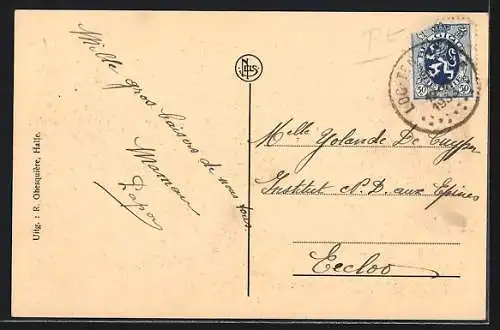 Mille gros baisers de nous tous.
Maman
Papa
Uitg. : R. Ghesquière, Halle.
NELS
BELGIQUE
BELGIË
50 50
LOO-TEN
193
Melle Yolande De Cuyper
Institut N.D. aux Epines
Eecloo